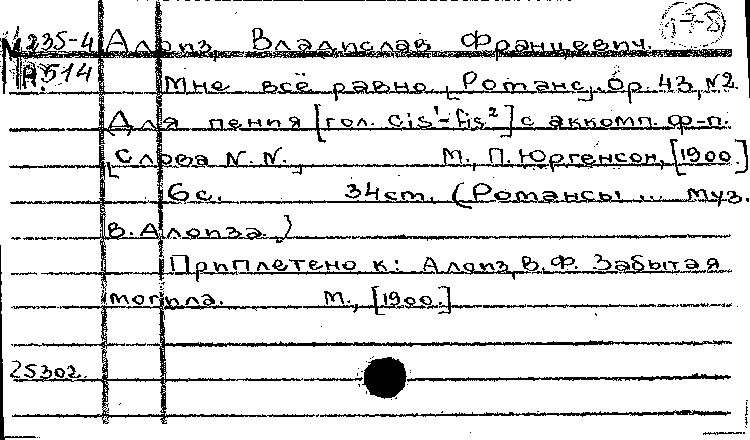 М 235-4 Алоиз, Владислав Францевич. 1-78
А.514 Мне всё равно. [Романс]. Ор. 43, №2.
Для пения [гол. cis¹-fis²] с аккомп. ф-п.
[Слова N. N., М., П. Юргенсон, [1900.]
6 с. 34 ст. (Романсы ... муз.
В. Алоиза.)
Приплетено к: Алоиз, В. Ф. Забытая
могила. М., [1900.]
25302.